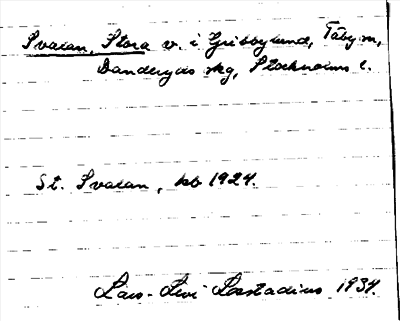 Svalan, Stora v. i Gribbylund, Täby sn,
Danderyds skg, Stockholms l.
St. Svalan, kb 1924.
Lars-Levi Læstadius 1934.